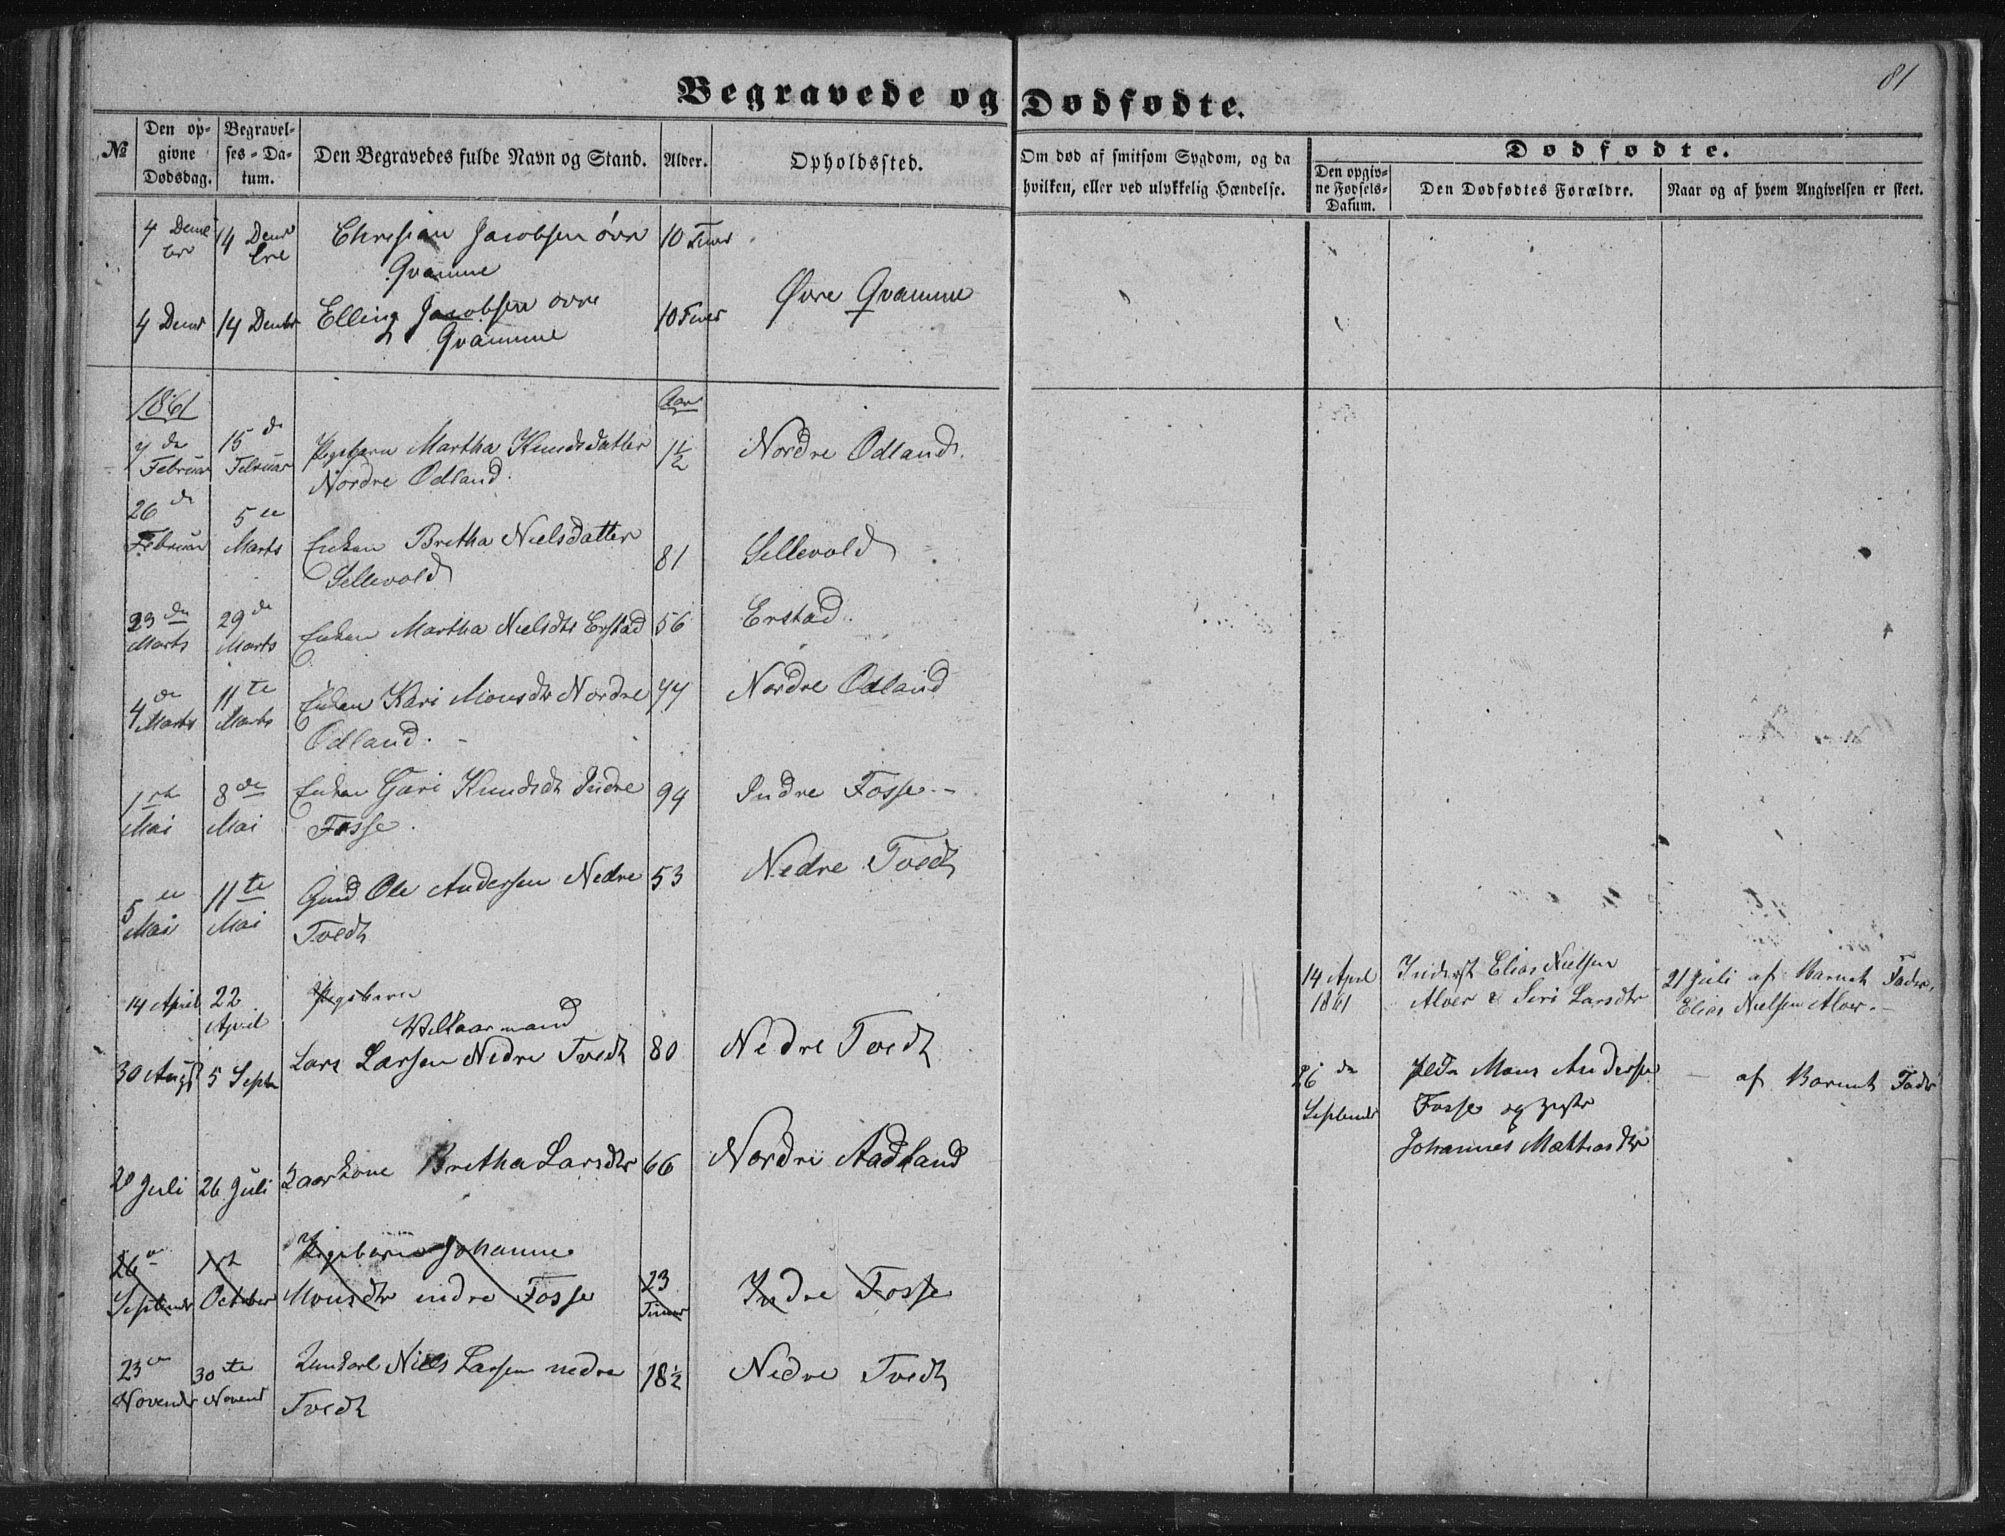 81
Begravede og Dødfødte.
№
Den op-
givne
Dødsdag.
Begravel-
ses-Da-
tum.
Den Begravedes fulde Navn og Stand.
Alder.
Opholdssted.
Om død af smitsom Sygdom, og da
hvilken, eller ved ulykkelig Hændelse.
Dødfødte.
Den opgiv-
ne Fødsels-
Datum.
Den Dødfødtes Forældre.
Naar og af hvem Angivelsen er skeet.
4 Decem
ber
14 Decem
bre
Christian Jacobsen övre
Qvamme
10 Timer
4 Decbr
14 Decbr
Elling Jacobsen övre
Qvamme
10 Timer
Øvre Qvamme
1861
Aar
7de
Februar
15de
Februar
Pigebarn Martha Knudsdatter
Nordre Odland.
1½
Nordre Odland.
26de
Februar
5te
Marts
Enken Bretha Nielsdatter
Sellevold
81
Sellevold
23de
Marts
29de
Marts
Enken Martha Nielsdtr Erstad
56
Erstad.
4de
Marts
11te
Marts
Enken Kari Monsdtr Nordre
Odland. -
77
Nordre Odland
1ste
Mai
8de
Mai
Enken Gari Knudsdt Indre
Fosse.
94
Indre Fosse. -
5te
Mai
11te
Mai
Gmd Ole Andersen Nedre
Tvedt
53
Nedre Tvedt
14 April
22
April
Pigebarn
14 April
1861
Inderst Elias Nielsen
Alver & Siri Larsdtr
21 Juli af Barnets Fader,
Elias Nielsen Alver. -
30 Augst
5 Septr
Vilkaarmand
Lars Larsen Nedre Tvedt
80
Nedre Tvedt
26de
September
Mons Andersen
Fosse og
Johannes Mathiasdtr
- af Barnets Fader
20 Juli
26 Juli
Kaarkone Bretha Larsdtr
66
Nordre Aadland
26de
September
1ste
October
Pigebarn Johanne
Monsdtr indre Fosse
23
Timer
Indre Fosse
23de
November
30te
Novemb
Ungkarl Niels Larsen nedre
Tvedt
18½
Nedre Tvedt